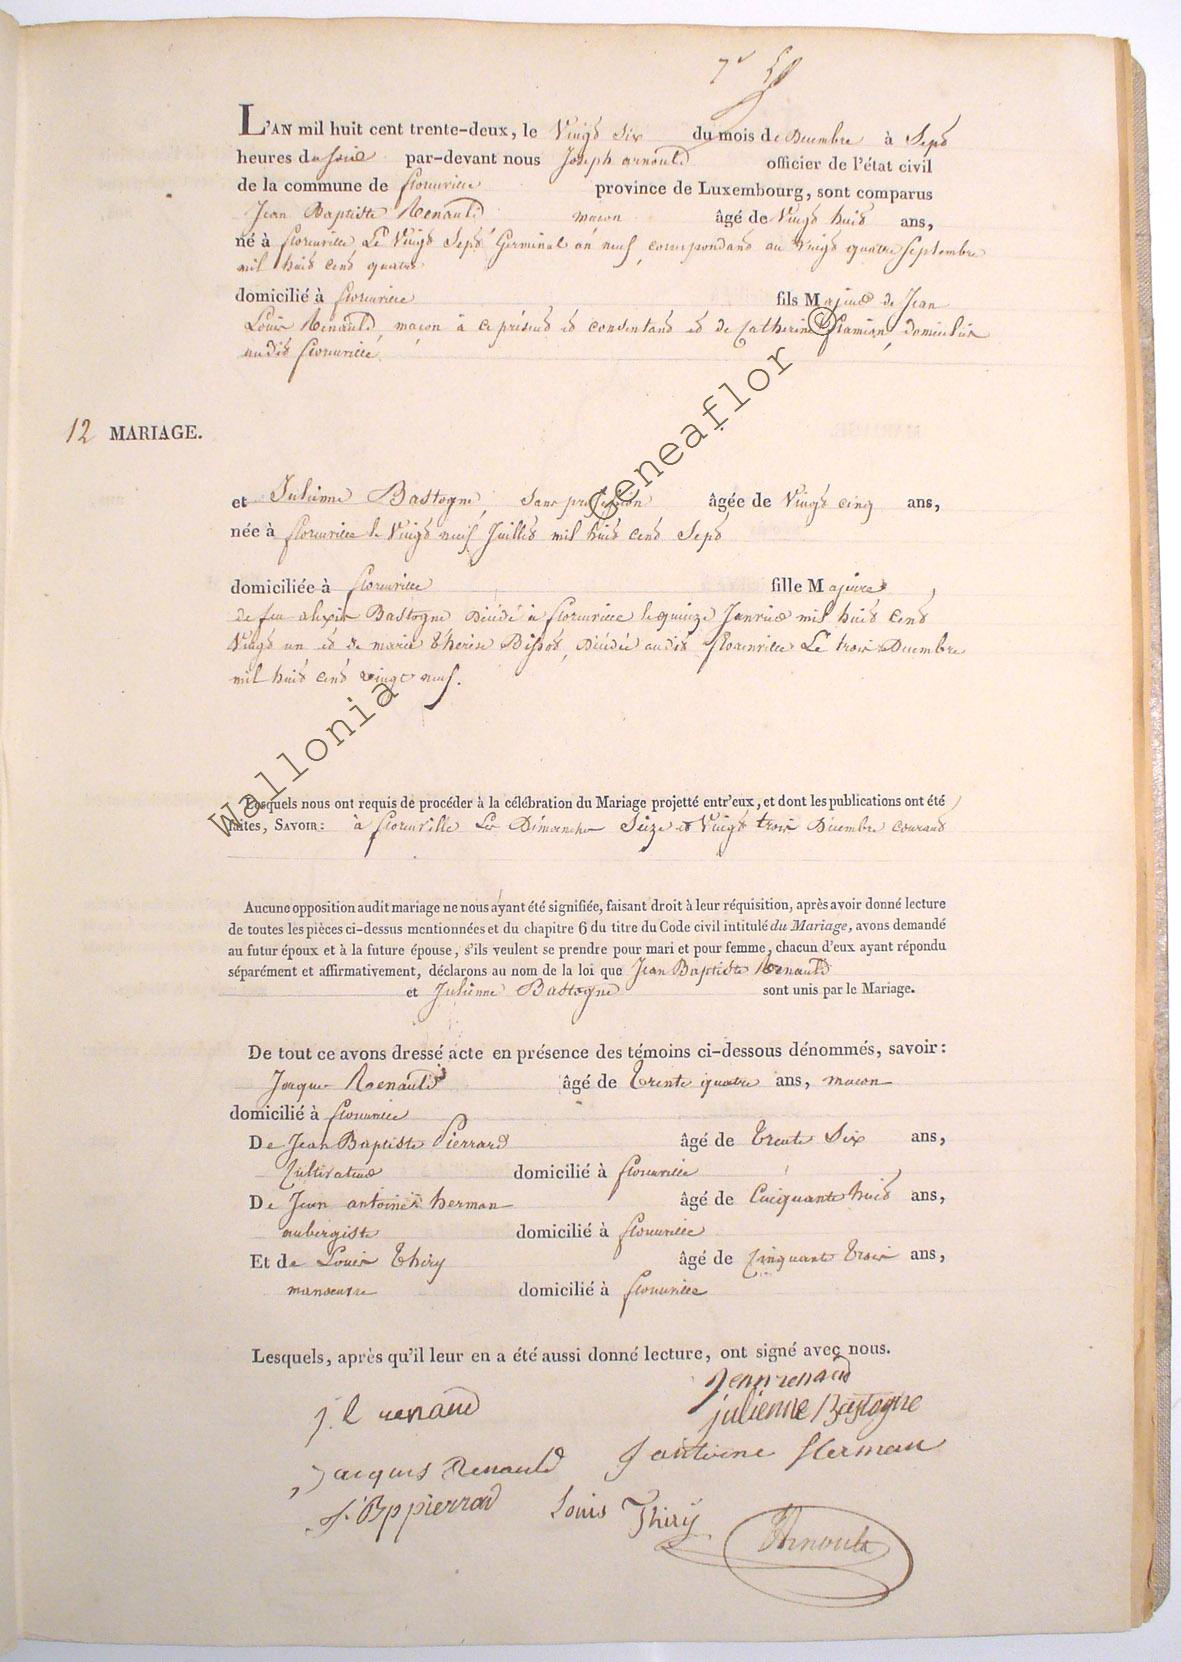 L'AN mil huit cent trente-deux, le Vingt Six du mois de Decembre à Sept
heures du soir par-devant nous Joseph arnould officier de l'état civil
de la commune de florenville province de Luxembourg, sont comparus
Jean Baptiste Renauld macon âgé de Vingt huit ans,
né à florenville Le Vingt Sept Germinal an neuf, correspondant au Vingt quatre septembre
mil huit cent quatre
domicilié à florenville fils Majeur de Jean
Louis Renauld, macon à ce présent et consentant et de Catherine domiciliés
audit florenville.
12 MARIAGE.
et Julienne Bastogne, Sans profession âgée de Vingt cinq ans,
née à florenville le Vingt neuf Juillet mil huit cent Sept
domiciliée à florenville fille Majeure,
de feu alexis Bastogne Décédé à florenville le quinze Janvier mil huit cent
Vingt un et de marie therese Bissot, Décédée audit florenville Le trois Decembre
mil huit cent vingt neuf.
Lesquels nous ont requis de procéder à la célébration du Mariage projetté entr'eux, et dont les publications ont été
faites, SAVOIR: à florenville Les Dimanches Seize et Vingt trois Decembre courant
Aucune opposition audit mariage ne nous ayant été signifiée, faisant droit à leur réquisition, après avoir donné lecture
de toutes les pièces ci-dessus mentionnées et du chapitre 6 du titre du Code civil intitulé du Mariage, avons demandé
au futur époux et à la future épouse, s'ils veulent se prendre pour mari et pour femme, chacun d'eux ayant répondu
séparément et affirmativement, déclarons au nom de la loi que Jean Baptiste Renauld
et Julienne Bastogne sont unis par le Mariage.
De tout ce avons dressé acte en présence des témoins ci-dessous dénommés, savoir:
Jacques Renauld âgé de trente quatre ans, macon
domicilié à florenville
De Jean Baptiste Pierrard âgé de trente Six ans,
Cultivateur domicilié à florenville
De Jean antoine herman âgé de Cinquante huit ans,
aubergiste domicilié à florenville
Et de Louis thiry âgé de Cinquante trois ans,
manoeuvre domicilié à florenville
Lesquels, après qu'il leur en a été aussi donné lecture, ont signé avec nous.
Jean renaud
j. l renaud julienne Bastogne
Jacques Renauld J antoine Herman
J. Bp pierrard Louis Thiry Arnould
Wallonia Geneaflor ©